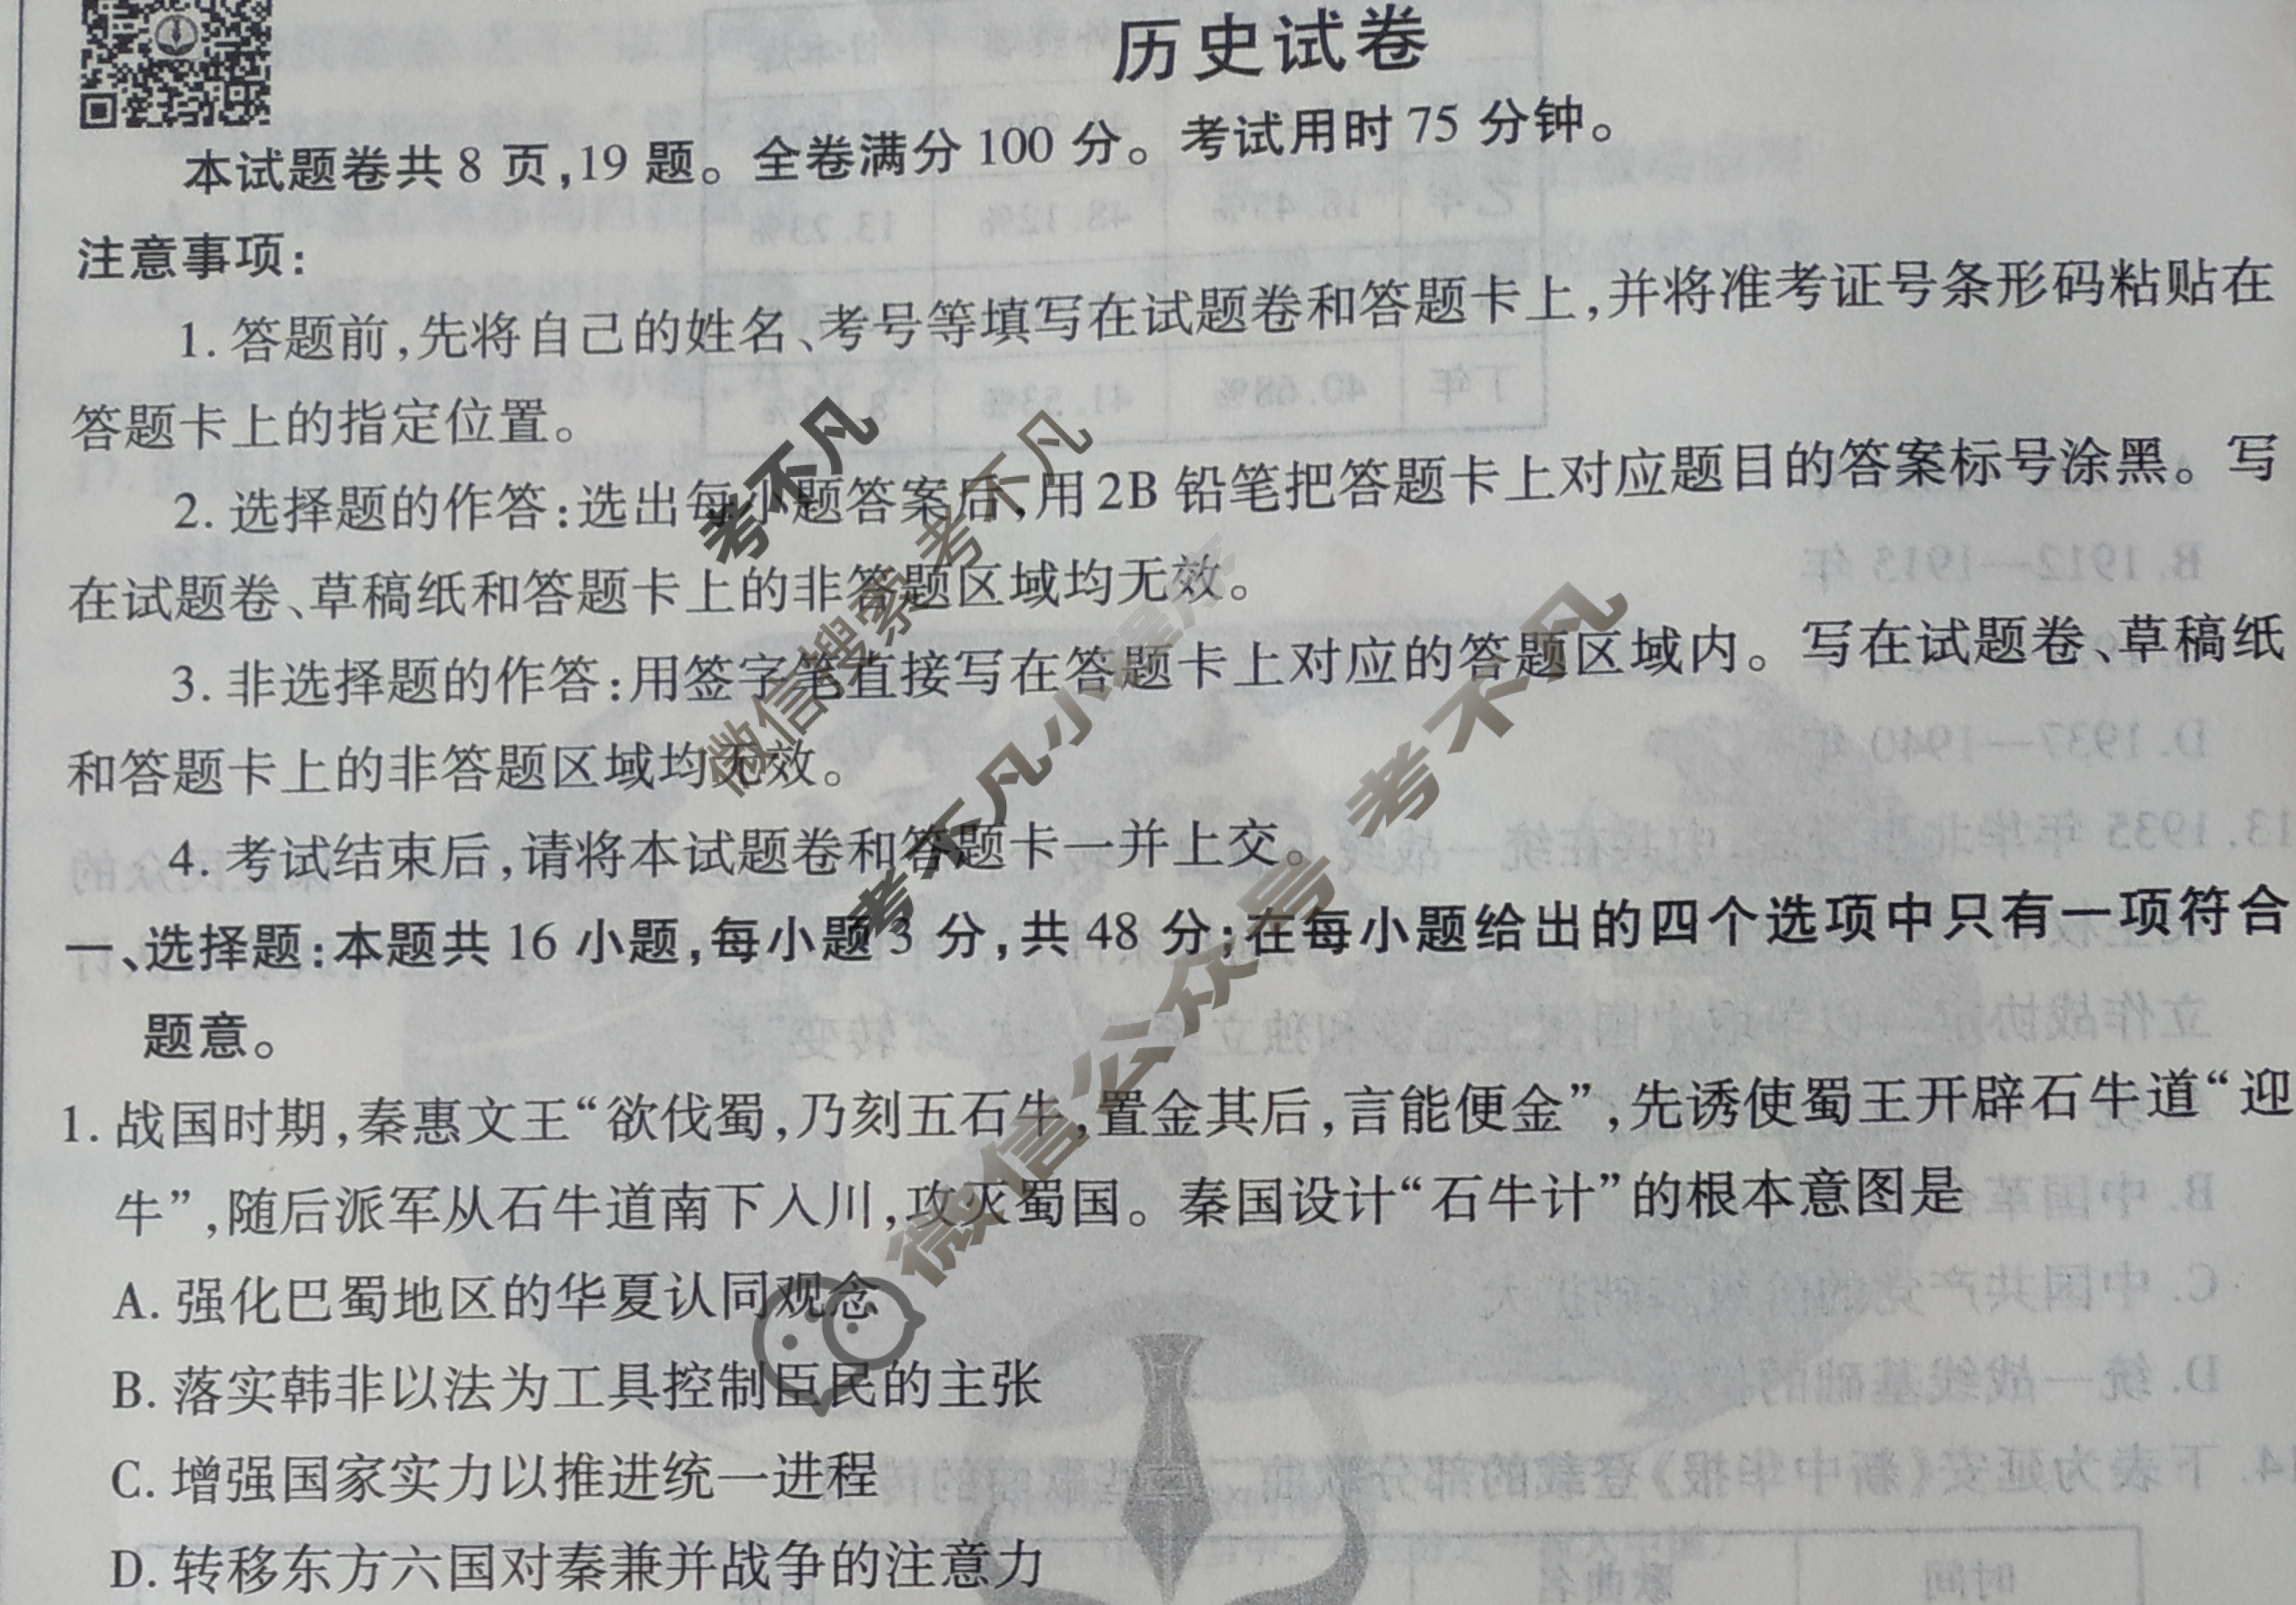 历史试卷
本试题卷共8页,19题。全卷满分100分。考试用时75分钟。
注意事项:
1. 答题前,先将自己的姓名、考号等填写在试题卷和答题卡上,并将准考证号条形码粘贴在
答题卡上的指定位置。
2. 选择题的作答:选出每小题答案后,用2B铅笔把答题卡上对应题目的答案标号涂黑。写
在试题卷、草稿纸和答题卡上的非答题区域均无效。
3. 非选择题的作答:用签字笔直接写在答题卡上对应的答题区域内。写在试题卷、草稿纸
和答题卡上的非答题区域均无效。
4. 考试结束后,请将本试题卷和答题卡一并上交。
一、选择题:本题共16小题,每小题3分,共48分;在每小题给出的四个选项中只有一项符合
题意。
1. 战国时期,秦惠文王“欲伐蜀,乃刻五石牛,置金其后,言能便金”,先诱使蜀王开辟石牛道“迎
牛”,随后派军从石牛道南下入川,攻灭蜀国。秦国设计“石牛计”的根本意图是
A. 强化巴蜀地区的华夏认同观念
B. 落实韩非以法为工具控制臣民的主张
C. 增强国家实力以推进统一进程
D. 转移东方六国对秦兼并战争的注意力
考不凡
微信搜索 考不凡
考不凡小程序
微信公众号 考不凡